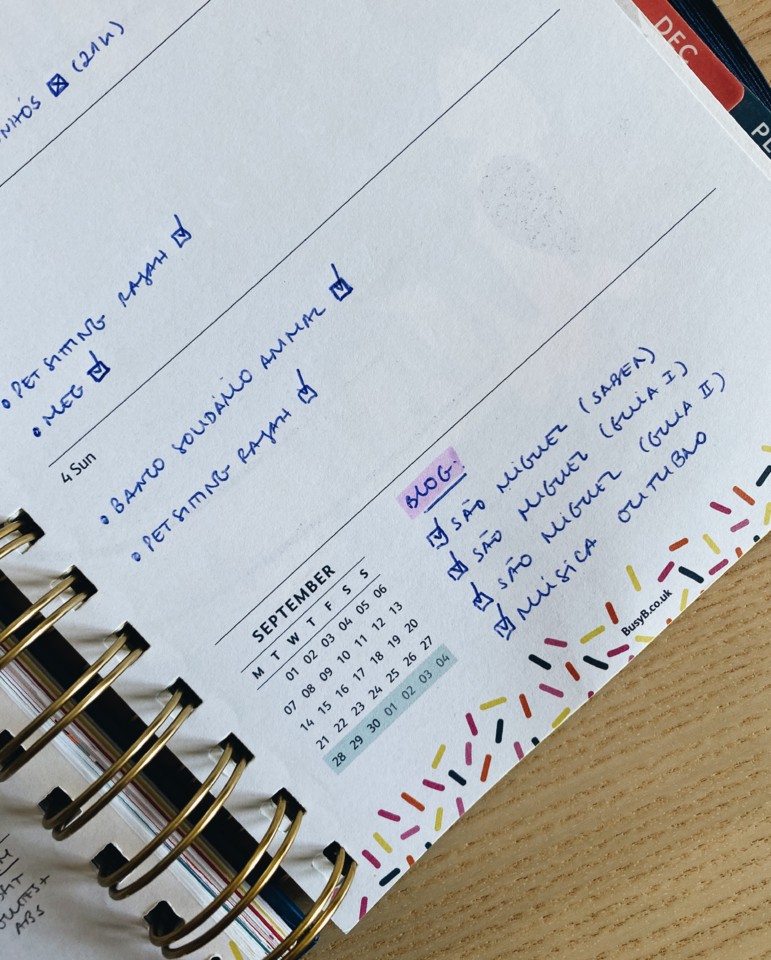 (21H)
• PET SITTING RAJAH
• MEG
4 Sun
• BANCO SOLIDÁRIO ANIMAL
• PET SITTING RAJAH
BLOG:
SÃO MIGUEL (SABER)
SÃO MIGUEL (GUIA I)
SÃO MIGUEL (GUIA II)
MÚSICA OUTUBRO
SEPTEMBER
M T W T F S S
01 02 03 04 05 06
07 08 09 10 11 12 13
14 15 16 17 18 19 20
21 22 23 24 25 26 27
28 29 30 01 02 03 04
BusyB.co.uk
DEC
ABS